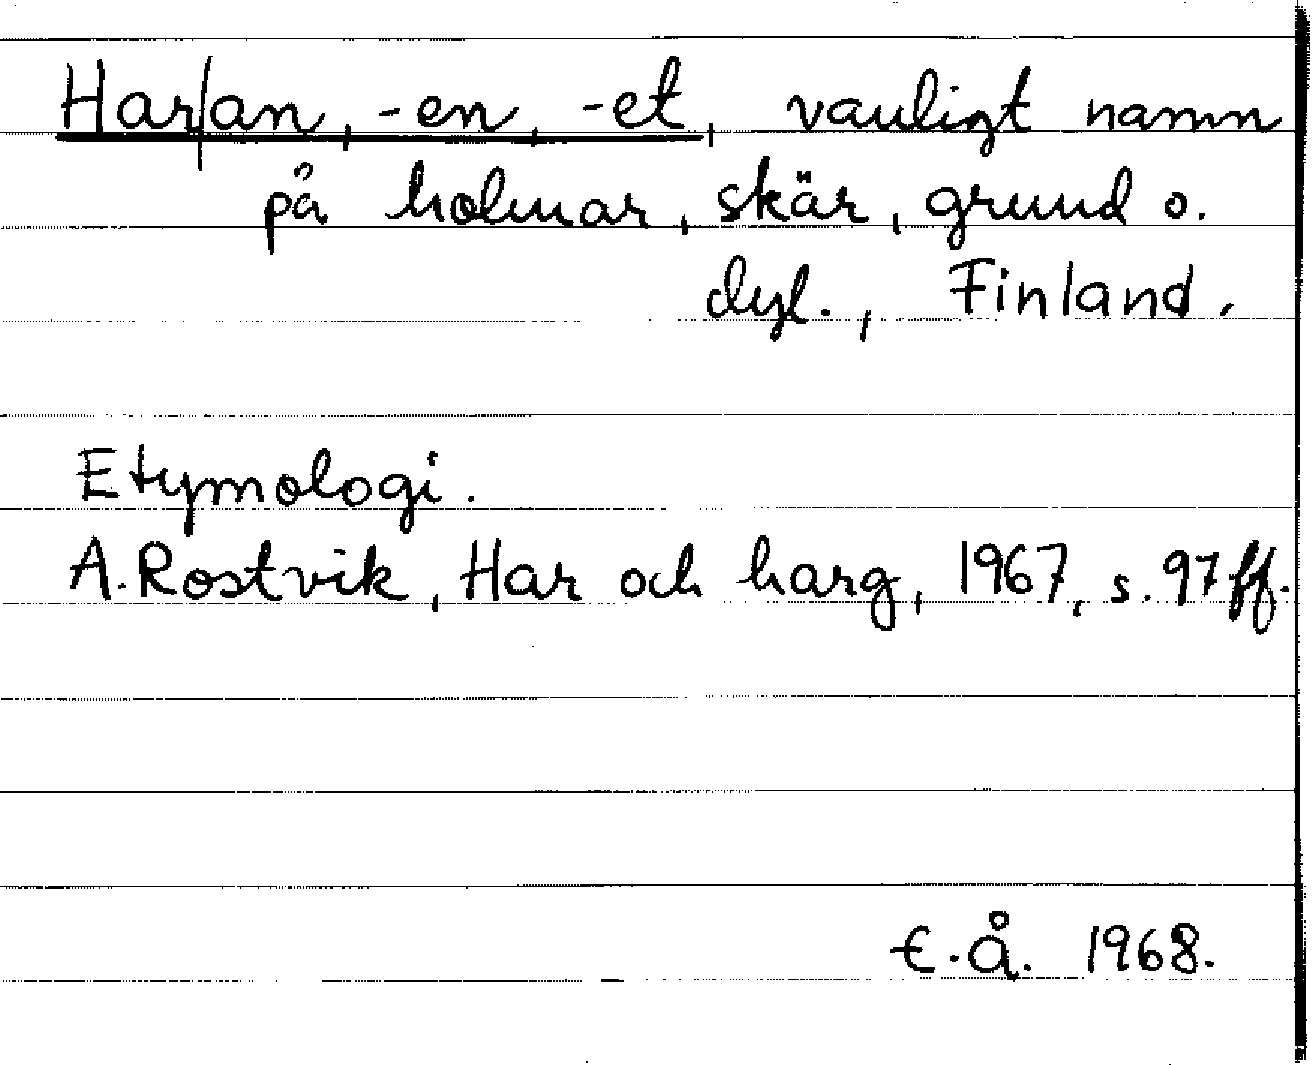 Har/an, -en, -et, vanligt namn
på holmar, skär, grund o.
dyl., Finland.
Etymologi.
A. Rostvik, Har och harg, 1967, s. 97 ff.
E.Å. 1968.